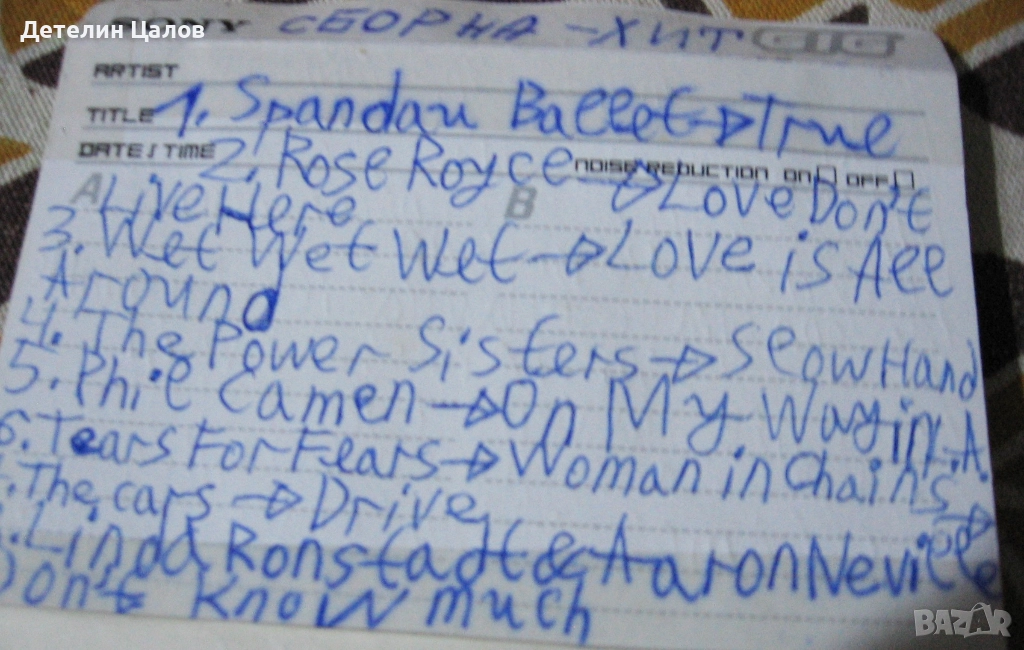 Детелин Цалов
СБОРНА - ХИТ
ARTIST
TITLE 1. Spandau Ballet → True
DATE / TIME 2. Rose Royce → Love Don't
NOISE REDUCTION ON OFF
A Live Here B
3. Wet Wet Wet → Love is All
Around
4. The Power Sisters → Slow Hand
5. Phil Camen → On My Way in .A.
6. Tears For Fears → Woman in Chains
.The cars → Drive
.Linda Ronstadt & Aaron Neville →
Don't Know much
BAZAR